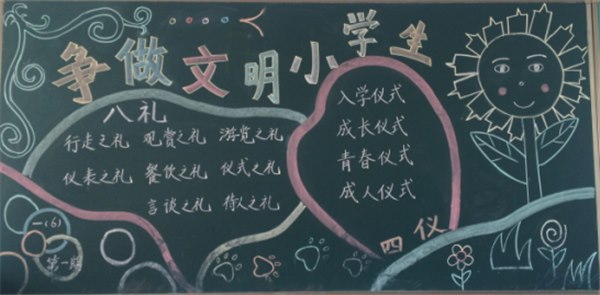 争做文明小学生
八礼
行走之礼 观赏之礼 游览之礼
仪表之礼 餐饮之礼 仪式之礼
言谈之礼 待人之礼
入学仪式
成长仪式
青春仪式
成人仪式
四仪
一(6)
第一期